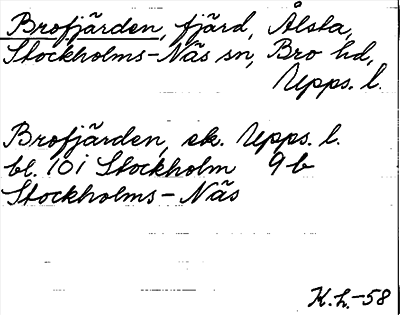 Brofjärden, fjärd, Ålsta,
Stockholms-Näs sn, Bro hd,
Upps. l.
Brofjärden, ek. Upps. l.
bl. 10 i Stockholm 9 b
Stockholms-Näs
K.L.-58